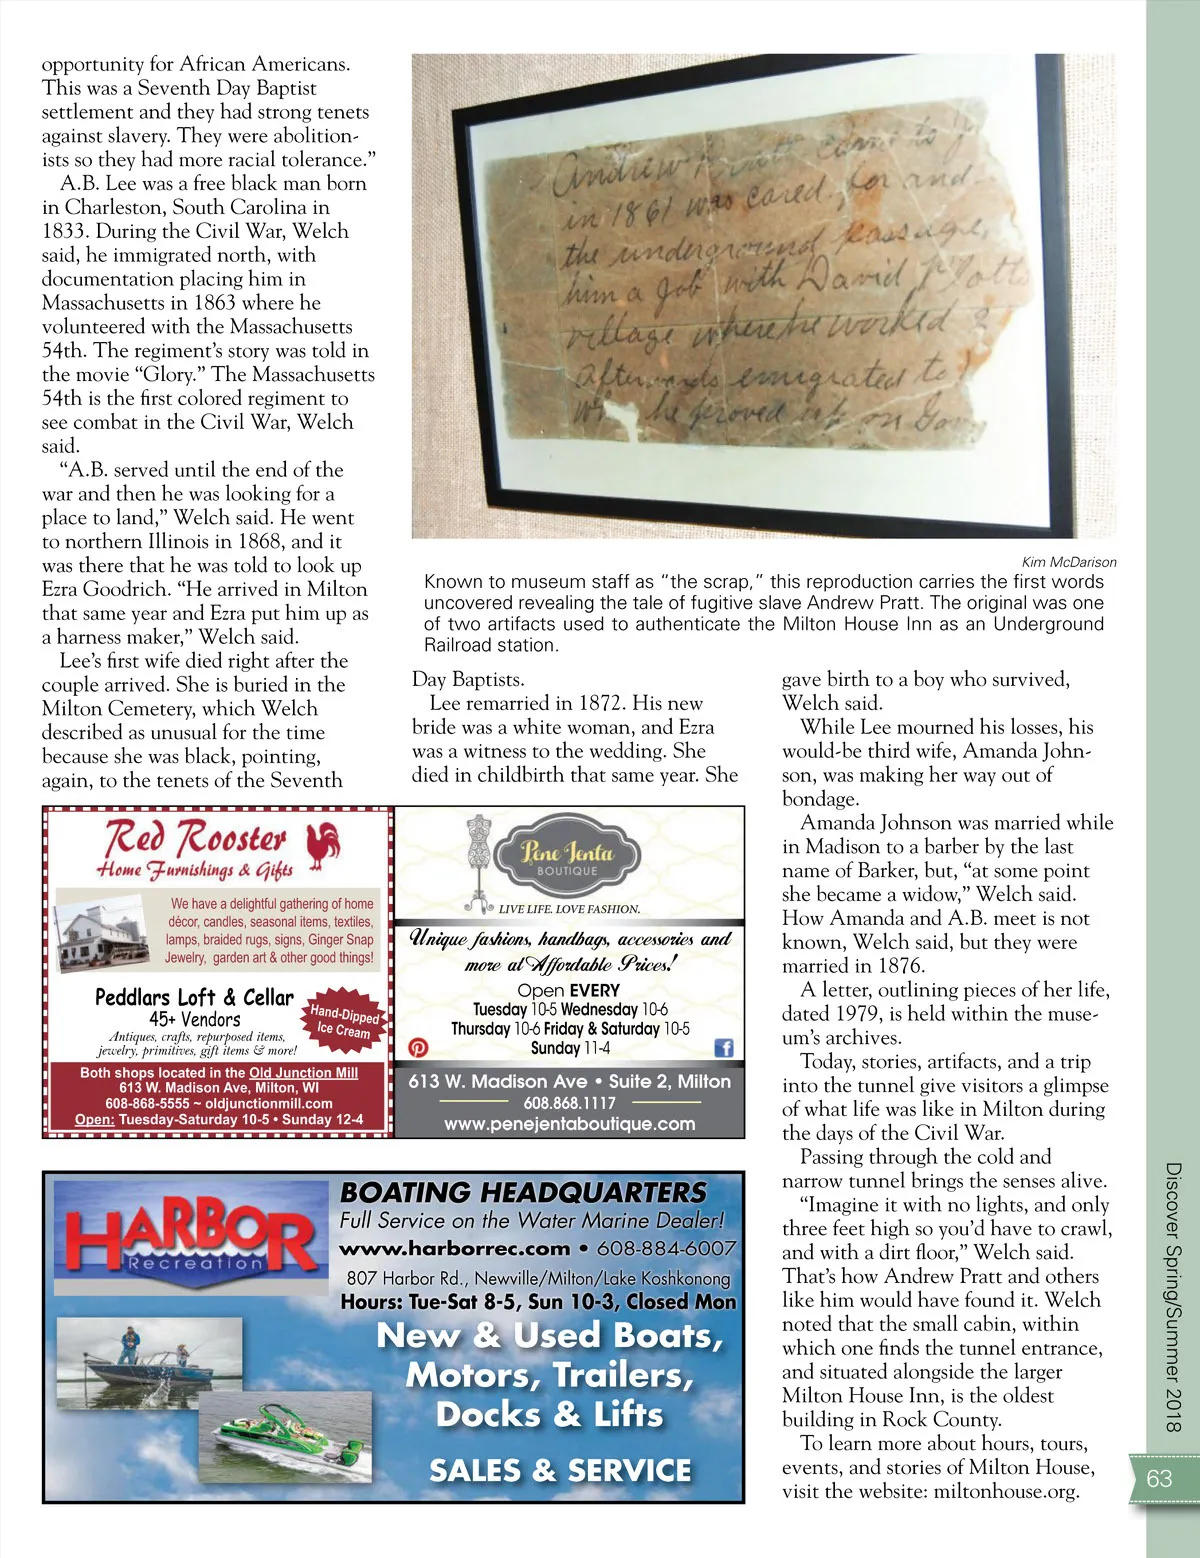 opportunity for African Americans.
This was a Seventh Day Baptist
settlement and they had strong tenets
against slavery. They were abolition-
ists so they had more racial tolerance.”
A.B. Lee was a free black man born
in Charleston, South Carolina in
1833. During the Civil War, Welch
said, he immigrated north, with
documentation placing him in
Massachusetts in 1863 where he
volunteered with the Massachusetts
54th. The regiment’s story was told in
the movie “Glory.” The Massachusetts
54th is the first colored regiment to
see combat in the Civil War, Welch
said.
“A.B. served until the end of the
war and then he was looking for a
place to land,” Welch said. He went
to northern Illinois in 1868, and it
was there that he was told to look up
Ezra Goodrich. “He arrived in Milton
that same year and Ezra put him up as
a harness maker,” Welch said.
Lee’s first wife died right after the
couple arrived. She is buried in the
Milton Cemetery, which Welch
described as unusual for the time
because she was black, pointing,
again, to the tenets of the Seventh
Andrew Pratt came to
in 1861 was cared for and
the underground passage,
him a job with David Platts
village where he worked
afterwards emigrated to
he proved up on
Kim McDarison
Known to museum staff as “the scrap,” this reproduction carries the first words
uncovered revealing the tale of fugitive slave Andrew Pratt. The original was one
of two artifacts used to authenticate the Milton House Inn as an Underground
Railroad station.
Day Baptists.
Lee remarried in 1872. His new
bride was a white woman, and Ezra
was a witness to the wedding. She
died in childbirth that same year. She
gave birth to a boy who survived,
Welch said.
While Lee mourned his losses, his
would-be third wife, Amanda John-
son, was making her way out of
bondage.
Amanda Johnson was married while
in Madison to a barber by the last
name of Barker, but, “at some point
she became a widow,” Welch said.
How Amanda and A.B. meet is not
known, Welch said, but they were
married in 1876.
A letter, outlining pieces of her life,
dated 1979, is held within the muse-
um’s archives.
Today, stories, artifacts, and a trip
into the tunnel give visitors a glimpse
of what life was like in Milton during
the days of the Civil War.
Passing through the cold and
narrow tunnel brings the senses alive.
“Imagine it with no lights, and only
three feet high so you’d have to crawl,
and with a dirt floor,” Welch said.
That’s how Andrew Pratt and others
like him would have found it. Welch
noted that the small cabin, within
which one finds the tunnel entrance,
and situated alongside the larger
Milton House Inn, is the oldest
building in Rock County.
To learn more about hours, tours,
events, and stories of Milton House,
visit the website: miltonhouse.org.
Red Rooster
Home Furnishings & Gifts
We have a delightful gathering of home
décor, candles, seasonal items, textiles,
lamps, braided rugs, signs, Ginger Snap
Jewelry, garden art & other good things!
Peddlars Loft & Cellar
45+ Vendors
Antiques, crafts, repurposed items,
jewelry, primitives, gift items & more!
Hand-Dipped
Ice Cream
Both shops located in the Old Junction Mill
613 W. Madison Ave, Milton, WI
608-868-5555 ~ oldjunctionmill.com
Open: Tuesday-Saturday 10-5 • Sunday 12-4
Pene Jenta
BOUTIQUE
LIVE LIFE. LOVE FASHION.
Unique fashions, handbags, accessories and
more at Affordable Prices!
Open EVERY
Tuesday 10-5 Wednesday 10-6
Thursday 10-6 Friday & Saturday 10-5
Sunday 11-4
613 W. Madison Ave • Suite 2, Milton
608.868.1117
www.penejentaboutique.com
HARBOR
Recreation
BOATING HEADQUARTERS
Full Service on the Water Marine Dealer!
www.harborrec.com • 608-884-6007
807 Harbor Rd., Newville/Milton/Lake Koshkonong
Hours: Tue-Sat 8-5, Sun 10-3, Closed Mon
New & Used Boats,
Motors, Trailers,
Docks & Lifts
SALES & SERVICE
Discover Spring/Summer 2018
63